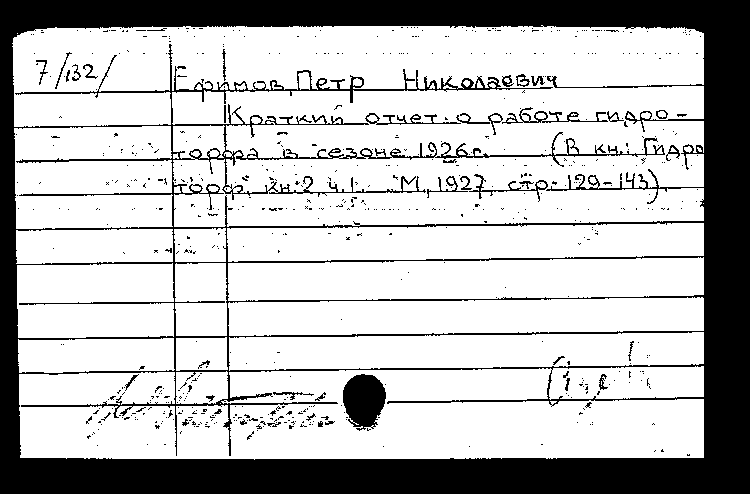 7/132/
Ефимов, Петр Николаевич
Краткий отчет о работе гидро-
торфа в сезоне 1926г. (В кн.: Гидро
торф, кн. 2, ч. 1. М., 1927, стр. 129-143).